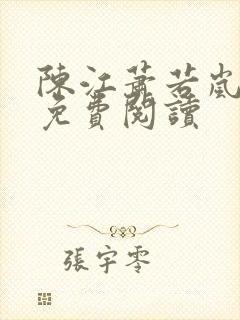 陳江蕭若嵐
免費閱讀
張宇零